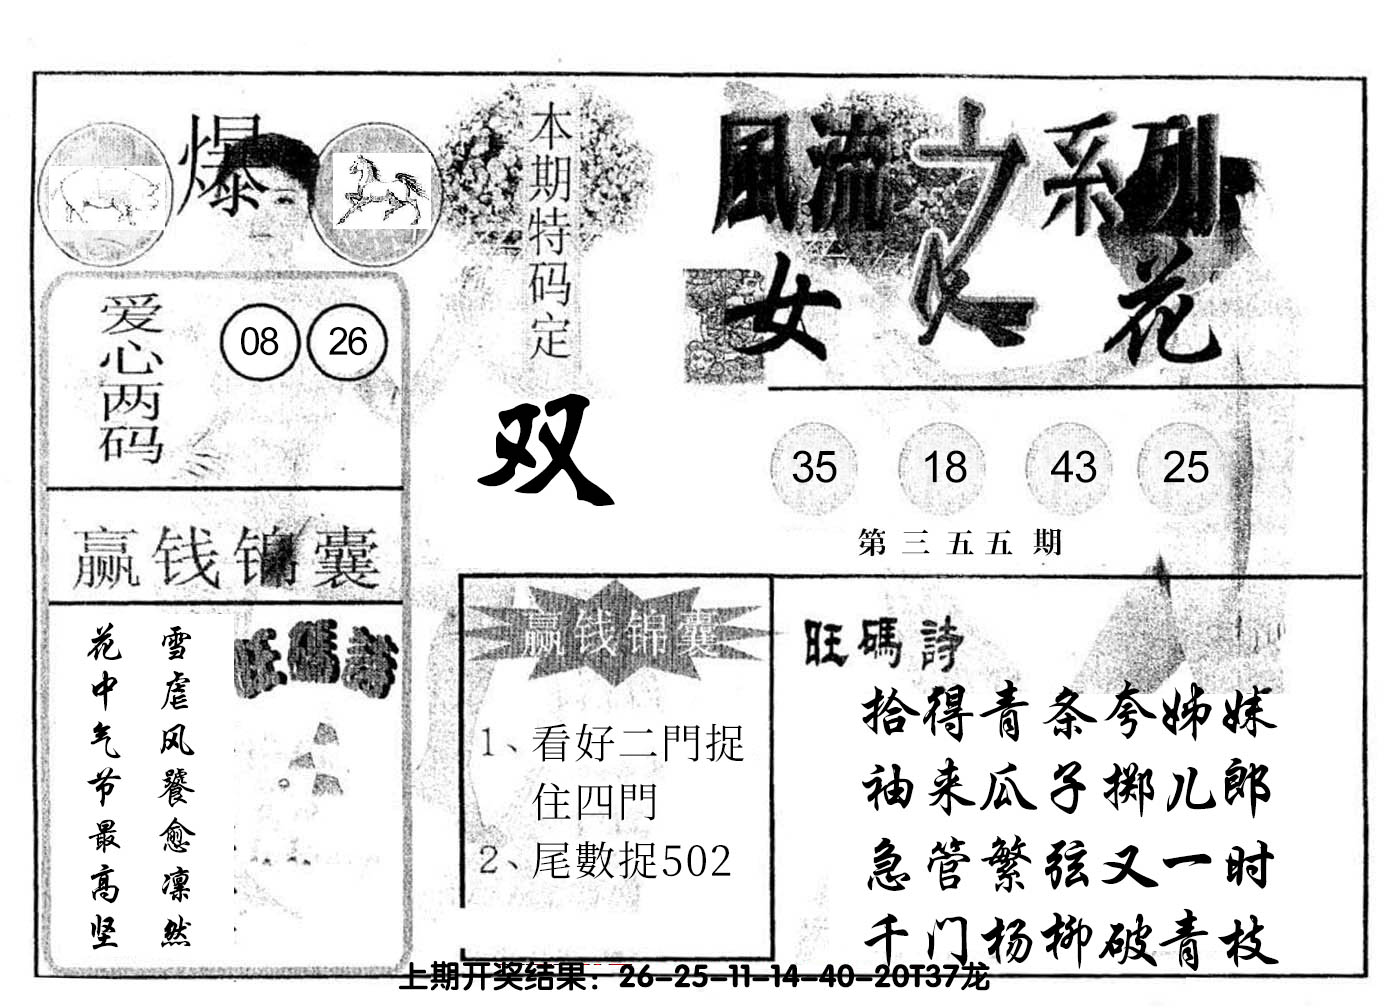 爆
爱心两码
08 26
赢钱锦囊
雪虐风饕愈凛然
花中气节最高坚
旺碼詩
本期特码定
双
風流之系列
女人花
35 18 43 25
第三五五期
赢钱锦囊
1、看好二門捉
住四門
2、尾數捉502
旺碼詩
拾得青条夸姊妹
袖来瓜子掷儿郎
急管繁弦又一时
千门杨柳破青枝
上期开奖结果：26-25-11-14-40-20T37龙